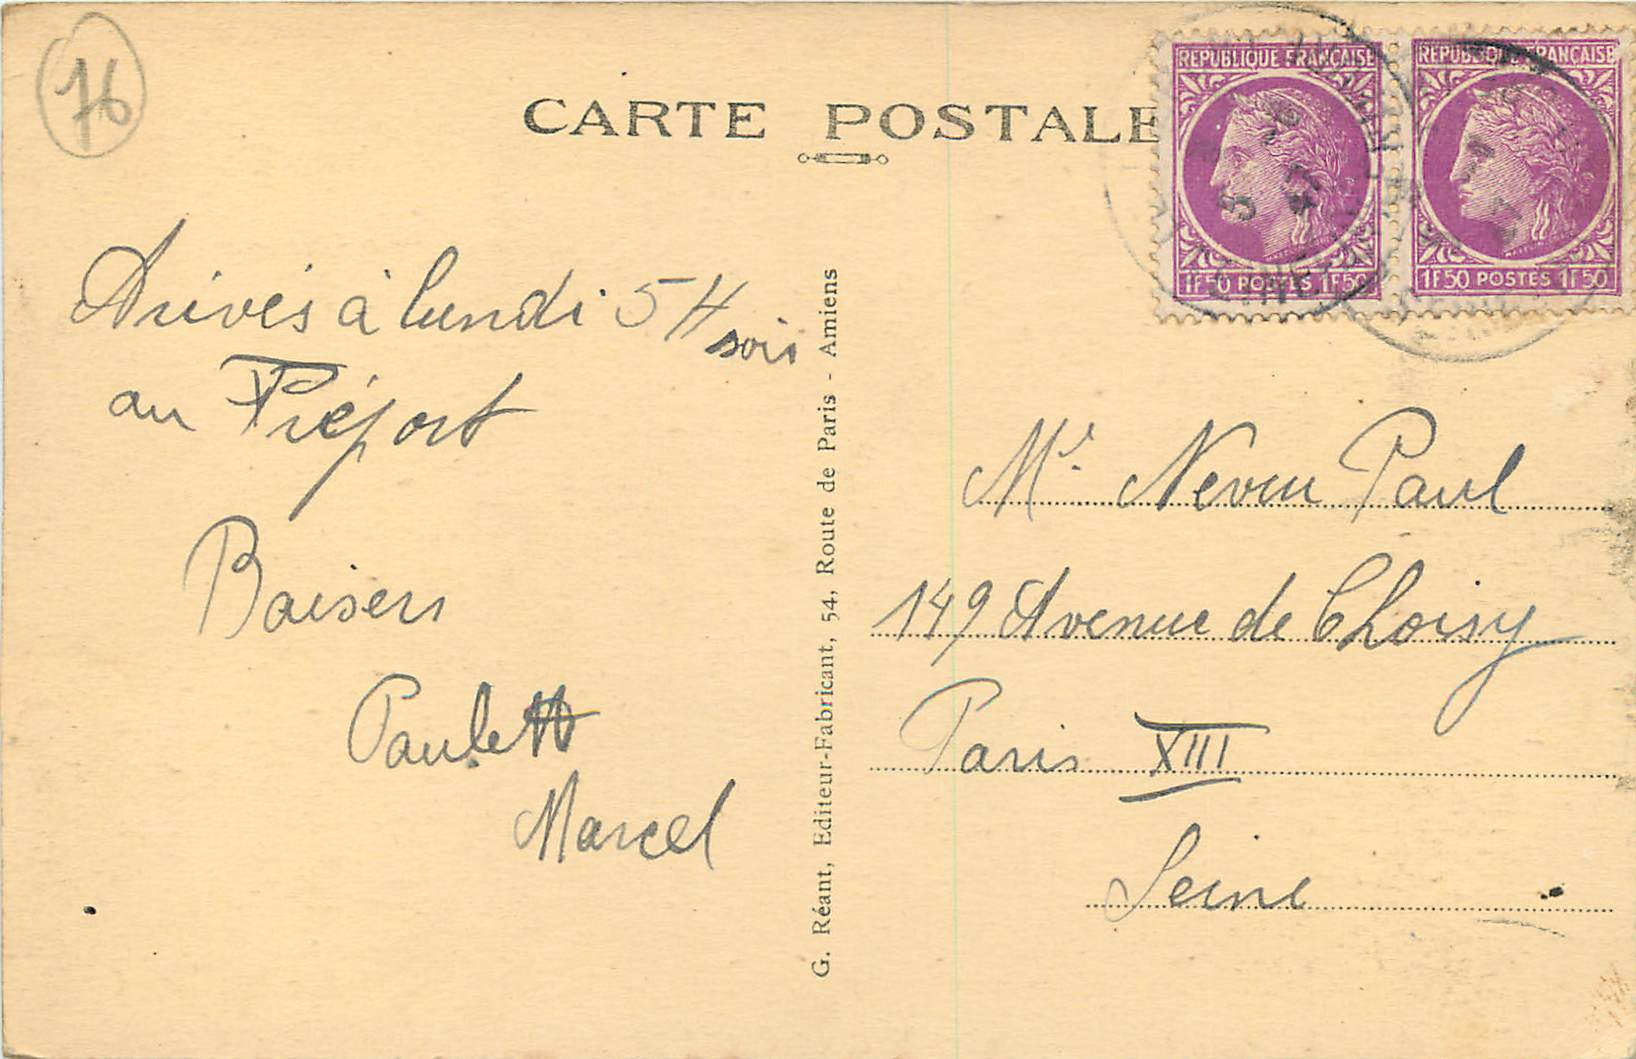 76
CARTE POSTALE
REPUBLIQUE FRANÇAISE
1F50 POSTES 1F50
REPUBLIQUE FRANÇAISE
1F50 POSTES 1F50
5
47
Arivés à lundi 5 H
soir
au Tréport
Baisers
Paulette
Marcel
G. Réant, Editeur-Fabricant, 54, Route de Paris - Amiens
Mr. Neveu Paul
149 Avenue de Choisy
Paris XIII
Seine